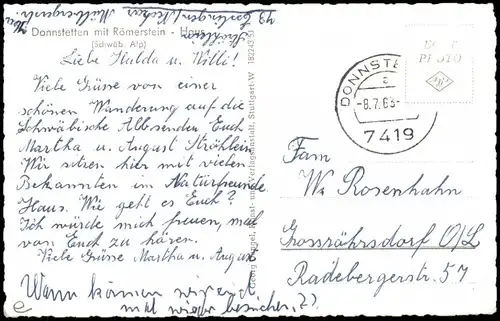 Donnstetten mit Römerstein - Haus
(Schwäb. Alp)
Ströhlein
73 Esslingen/Neckar
Liebe Hulda u. Willi!
Viele Grüsse von einer
schönen Wanderung auf die
Schwäbische Alb senden Euch
Martha u. August Ströhlein
Wir sitzen hier mit vielen
Bekannten im Naturfreunde
Haus. Wie geht es Euch?
Ich würde mich freuen, mal
von Euch zu hören.
Viele Grüsse Martha u. August
Wann können wir euch
mal wieder besuchen??
18224353
Kunst- und Verlagsanstalt, Stuttgart-W
DONNSTE
a
-8.7.63-
7419
ECHT
PHOTO
Fam.
W. Rosenhahn
Grossröhrsdorf O/L
Radebergerstr. 57